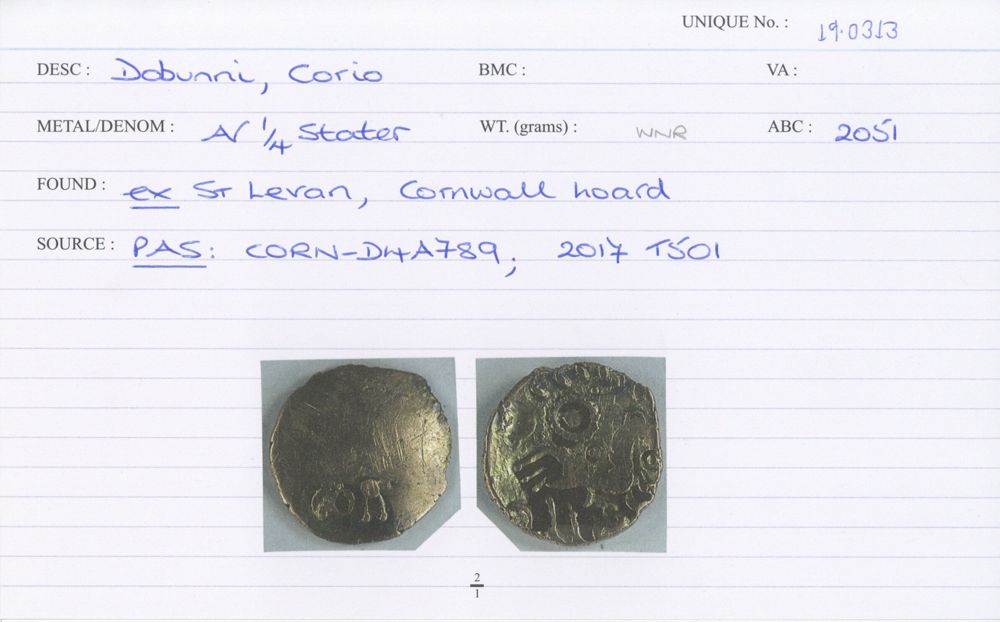 UNIQUE No. : 19.0313
DESC : Dobunni, Corio BMC : VA :
METAL/DENOM : AV 1/4 Stater WT. (grams) : WNR ABC : 2051
FOUND : ex St Levan, Cornwall hoard
SOURCE : PAS: CORN-D4A789; 2017 T501
COR
2
1